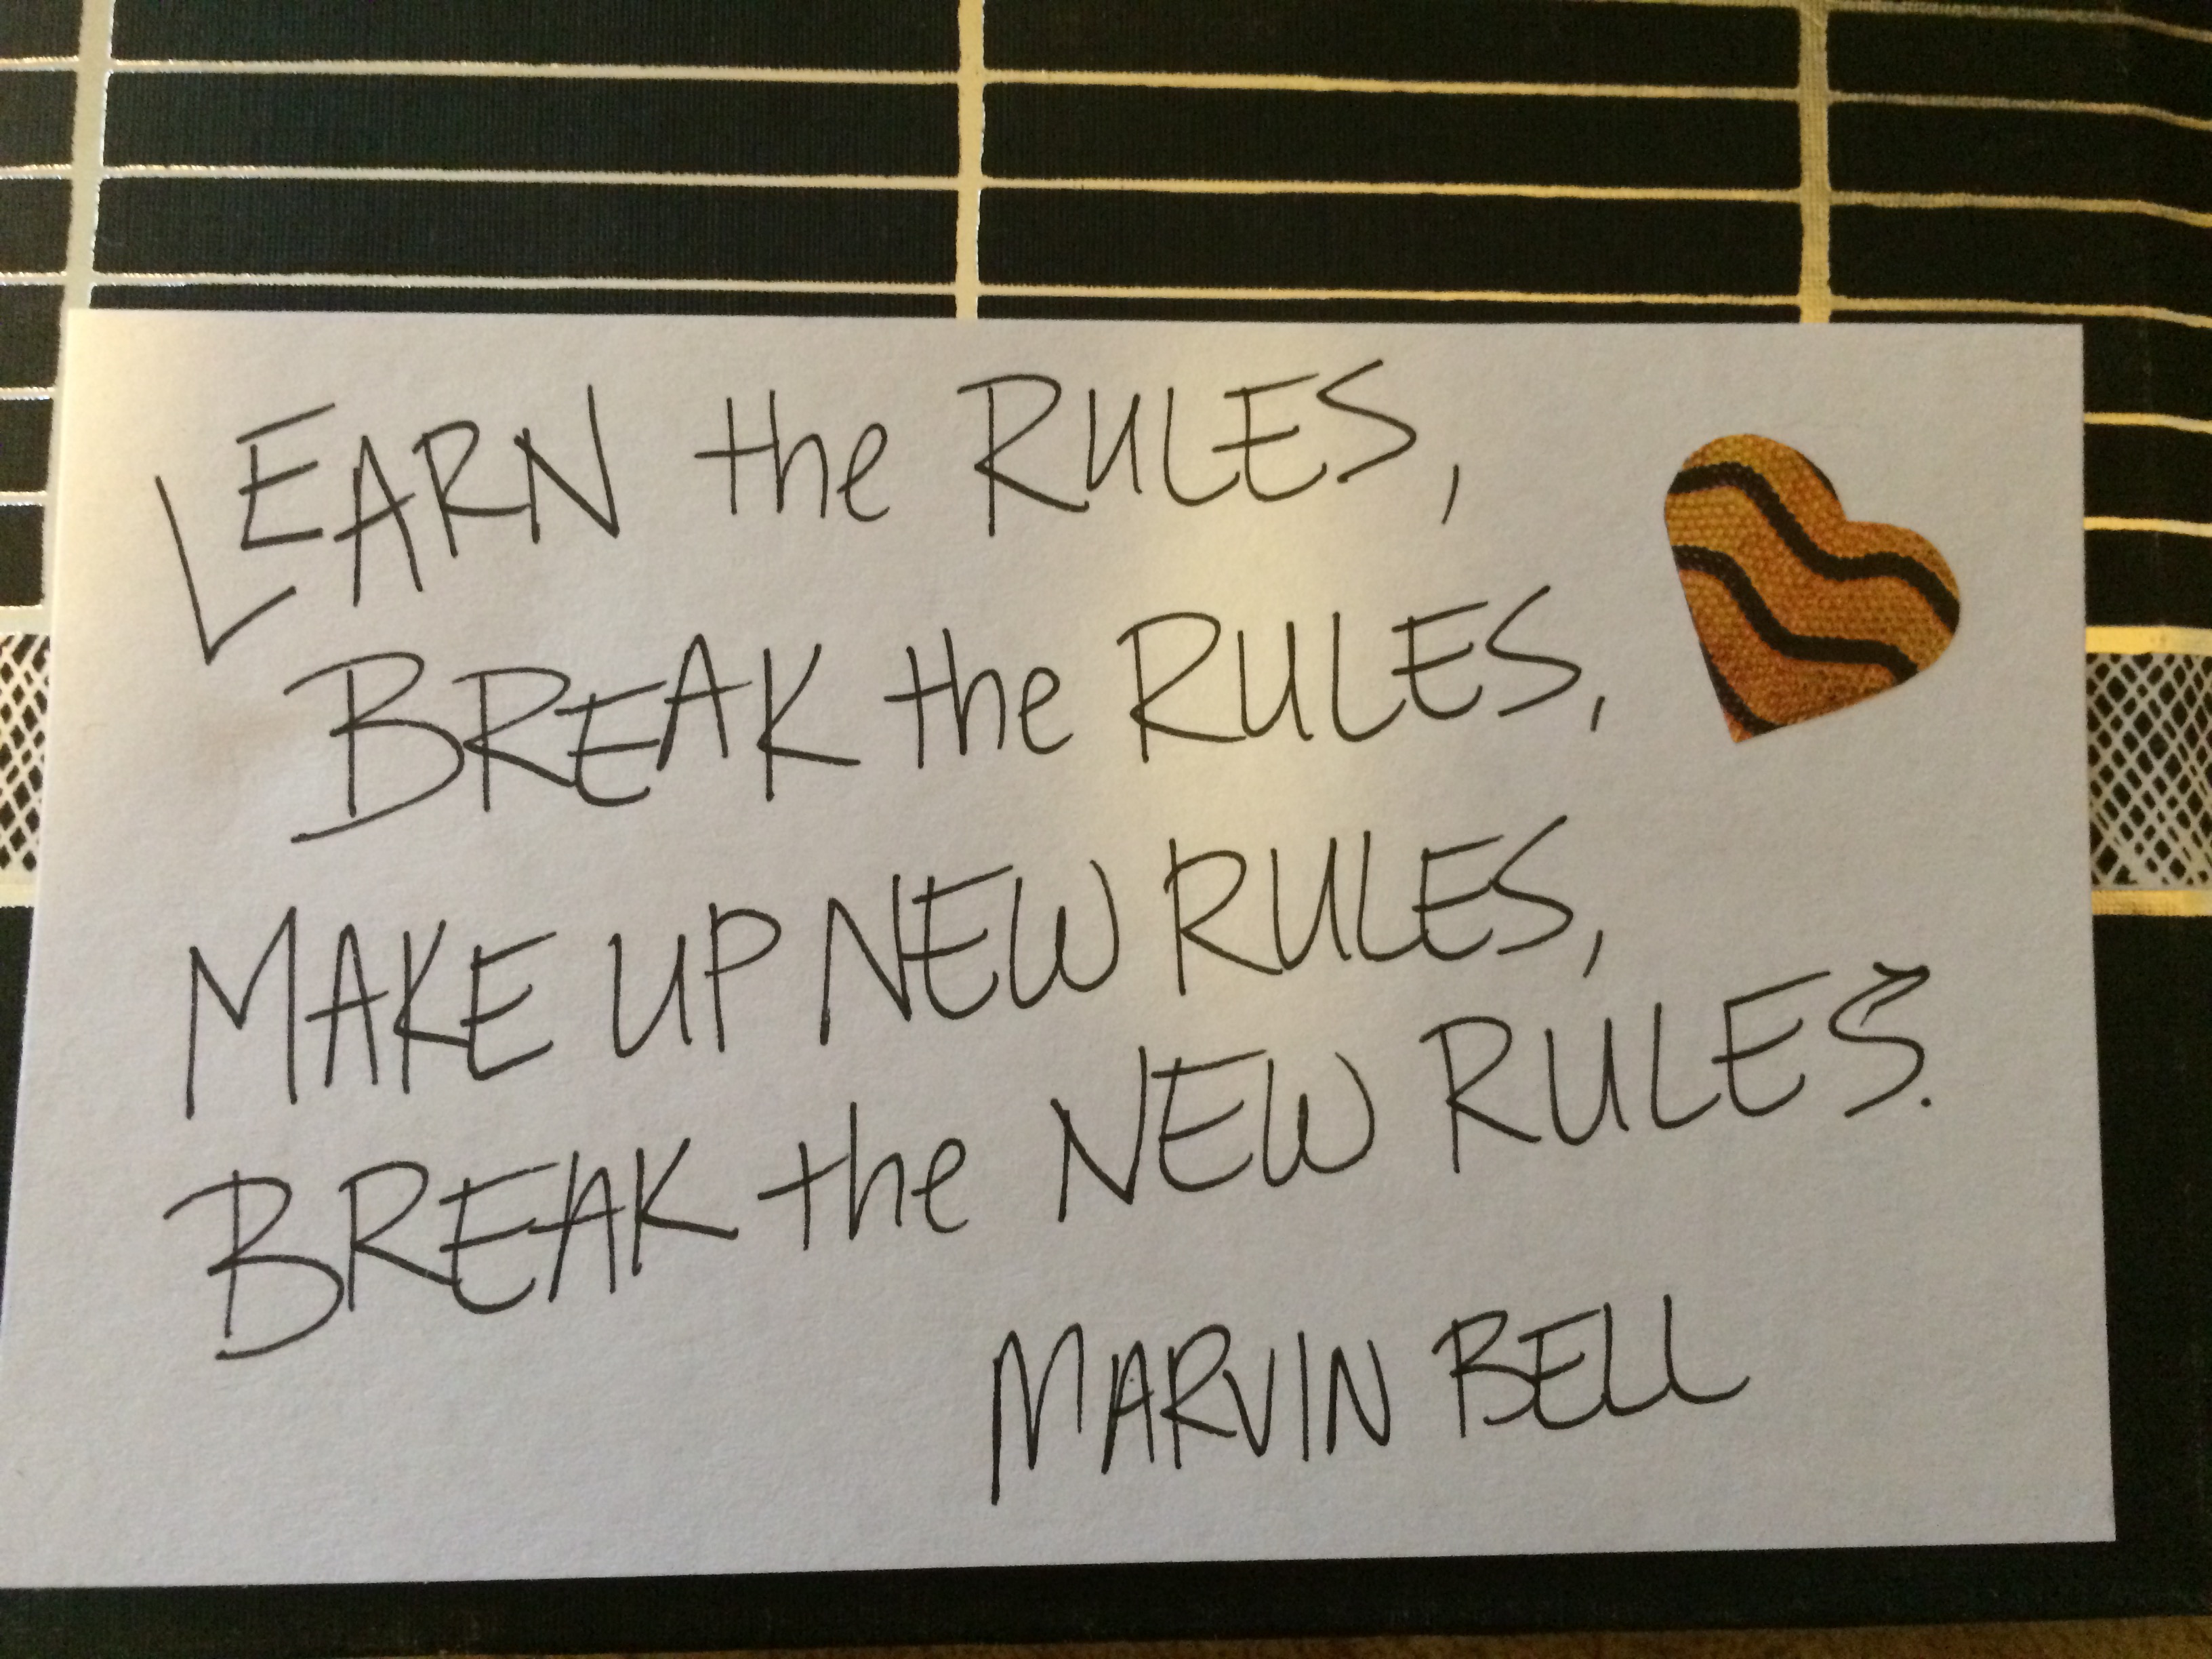 LEARN the RULES,
BREAK the RULES,
MAKE UP NEW RULES,
BREAK the NEW RULES.
MARVIN BELL